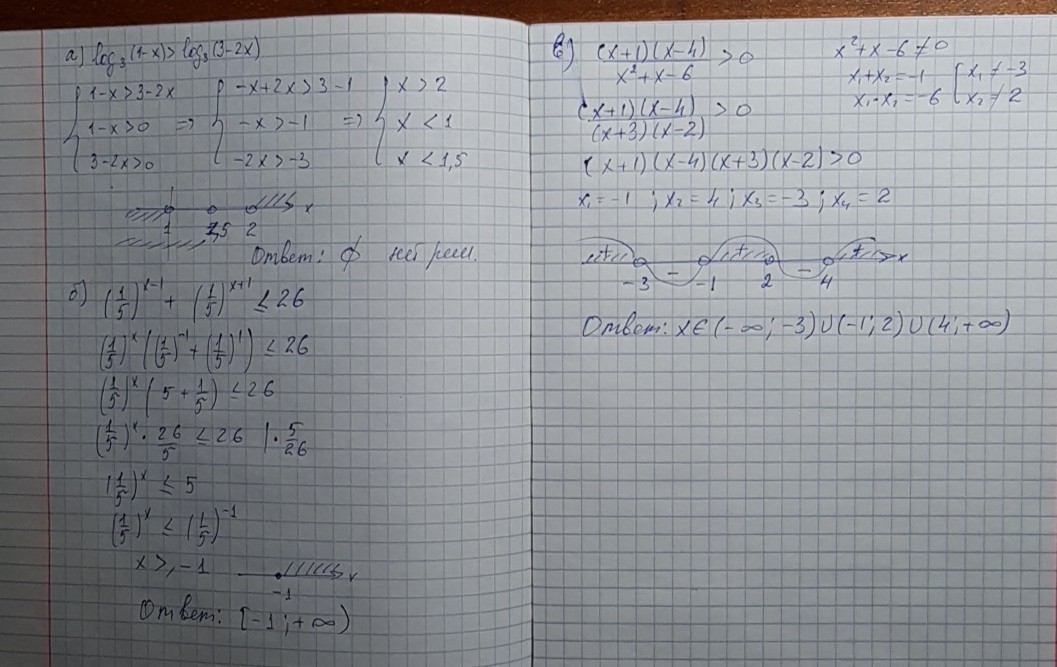 а) log₃(1-x)>log₃(3-2x)
{ 1-x>3-2x { -x+2x>3-1 { x>2
{ 1-x>0 => { -x>-1 => { x<1
{ 3-2x>0 { -2x>-3 { x<1,5
1 1,5 2 x
Ответ: ∅ нет реш.
б) (1/5)^(x-1) + (1/5)^(x+1) ≤ 26
(1/5)^x ((1/5)^(-1) + (1/5)^1) ≤ 26
(1/5)^x (5 + 1/5) ≤ 26
(1/5)^x · 26/5 ≤ 26 | · 5/26
(1/5)^x ≤ 5
(1/5)^x ≤ (1/5)^(-1)
x ≥ -1
-1 x
Ответ: [-1; +∞)
в) (x+1)(x-4)/(x²+x-6) > 0 x²+x-6≠0
x₁+x₂=-1 { x₁≠-3
x₁·x₂=-6 { x₂≠2
(x+1)(x-4)/((x+3)(x-2)) > 0
(x+1)(x-4)(x+3)(x-2)>0
x₁=-1 ; x₂=4 ; x₃=-3 ; x₄=2
+ - + - + x
-3 -1 2 4
Ответ: x∈(-∞; -3)∪(-1; 2)∪(4; +∞)